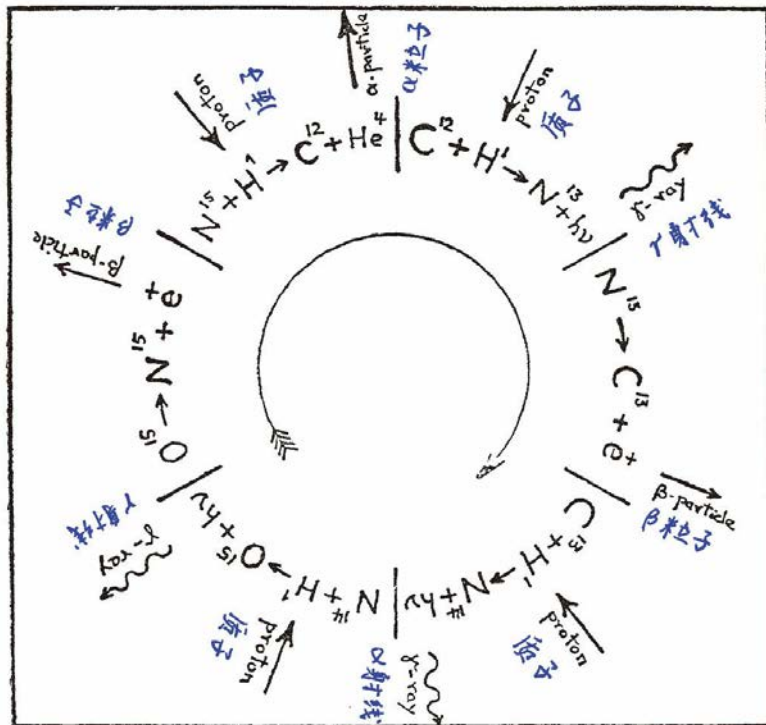 C¹²+H¹→N¹³+hν
proton
质子
γ-ray
γ射线
N¹³→C¹³+e⁺
β-particle
β粒子
C¹³+H¹→N¹⁴+hν
proton
质子
γ-ray
α射线
N¹⁴+H¹→O¹⁵+hν
proton
质子
γ-ray
γ射线
O¹⁵→N¹⁵+e⁺
β-particle
β粒子
N¹⁵+H¹→C¹²+He⁴
proton
质子
α-particle
α粒子